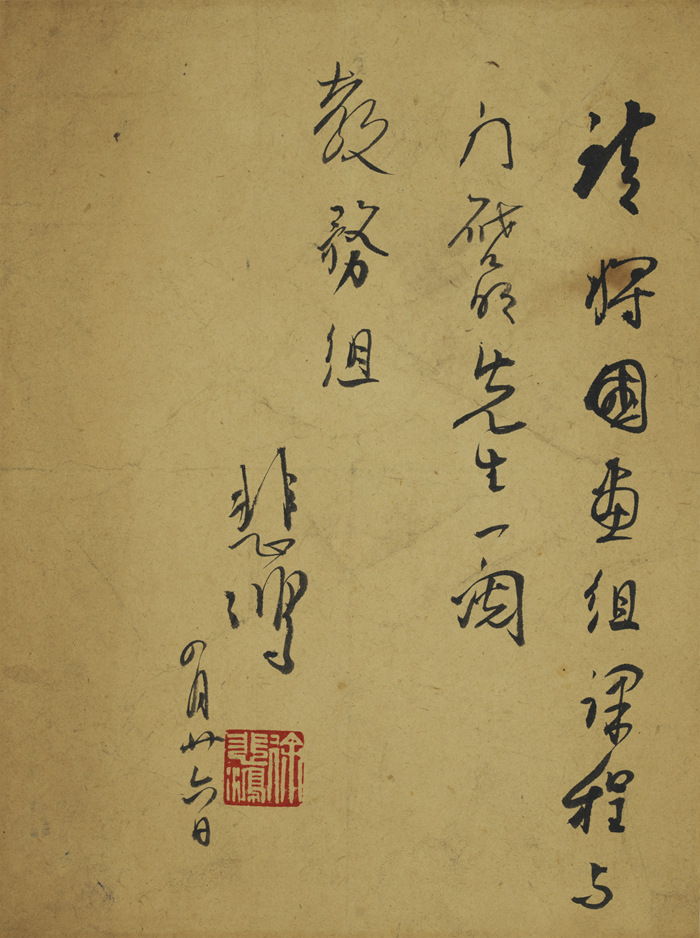 请将国画组课程与
门启明先生一阅
教务组
悲鸿
四月廿六日
徐悲鸿